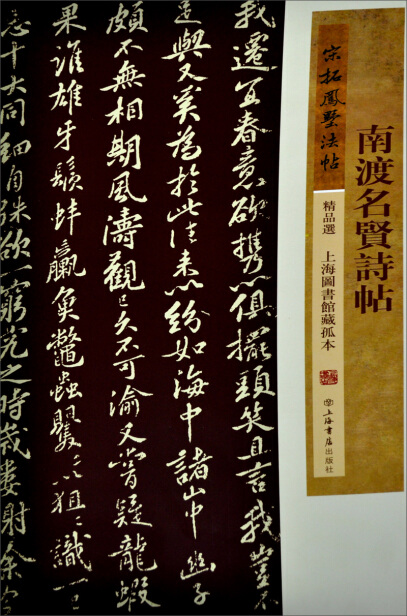 南渡名賢詩帖
宋拓鳳墅法帖
精品選 上海圖書館藏孤本
上海書店出版社
我遷宜春意欲携以俱擺頭笑且言我豈不
足與又奚為於此往来以紛如海中諸山中幽子
頗不無相期風濤觀已久不可渝又嘗疑龍蝦
果誰雄牙鬚蚌蠃魚鱉蟲瞿〻以狙〻識一已
忘十大同細自殊欲一窮究之時歲婁射余